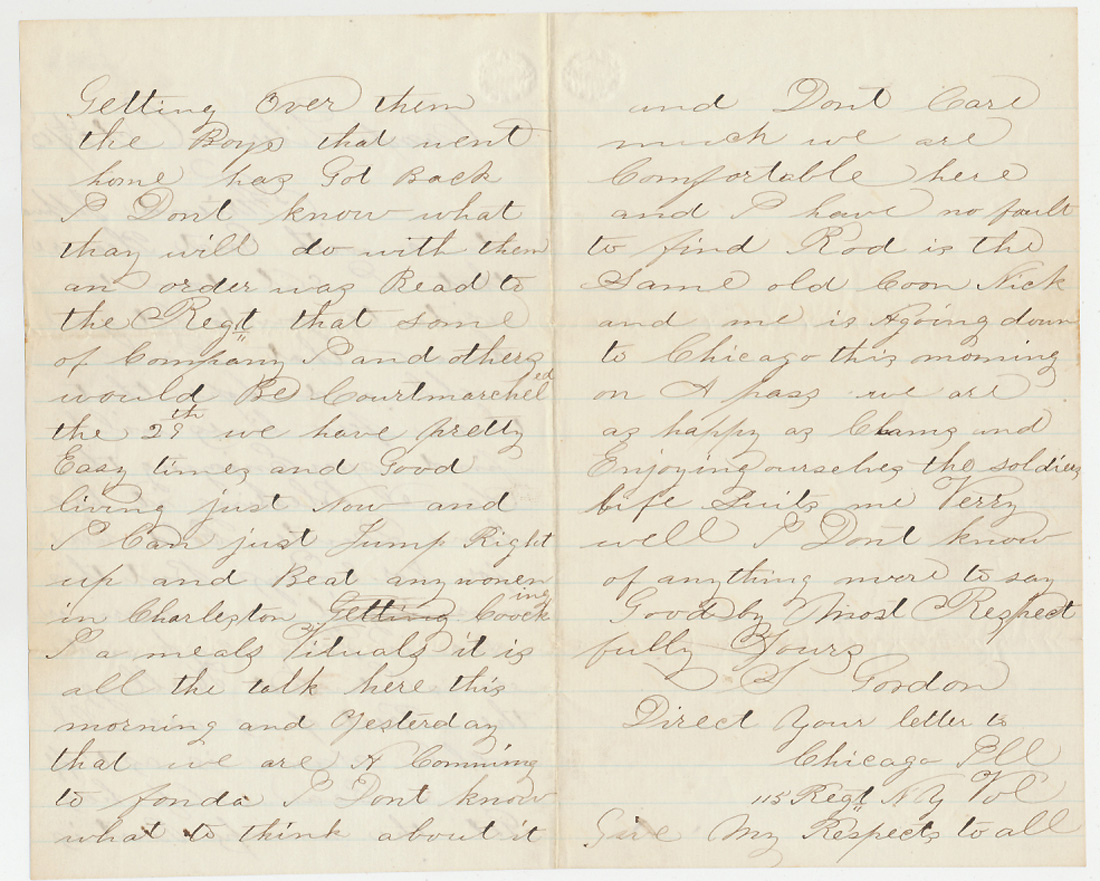 Getting Over them
the Boys that went
home has Got Back
I Dont know what
thay will do with them
an order was Read to
the Regt that some
of Company I and others
would Be Courtmarcheled
the 29th we have pretty
Easy times and Good
living just Now and
I Can just Jump Right
up and Beat any women
in Charleston Getting Coocking
a meals Vituals it is
all the talk here this
morning and yesterday
that we are A Comming
to fonda I Dont know
what to think about it
and Dont Care
much we are
Comfortable here
and I have no fault
to find Rod is the
Same old Coon Nick
and me is Agoing down
to Chicago this morning
on A pass we are
as happy as Clams and
Enjoying ourselves the soldiers
life Suits me Verry
well I Dont know
of anything more to say
Good by Most Respect
fully Yours
S Gordon
Direct Your letter to
Chicago Ill
115 Regt N Y Vol
Give My Respects to all